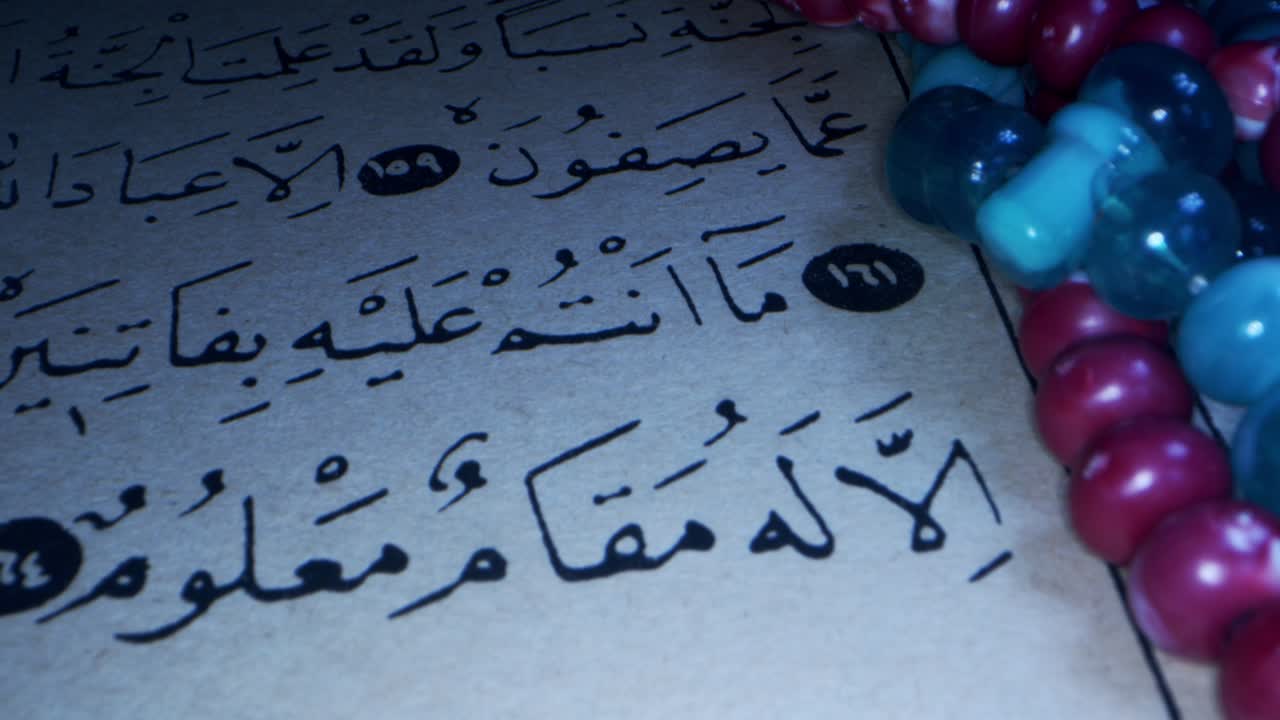 لْجِنَّةِ نَسَبًا وَلَقَدْ عَلِمَتِ الْجِنَّةُ
عَمَّا يَصِفُونَ ١٥٩ اِلَّا عِبَادَ
١٦١ مَآ اَنْتُمْ عَلَيْهِ بِفَاتِنِين
اِلَّا لَهُ مَقَامٌ مَعْلُومٌ ١٦٤